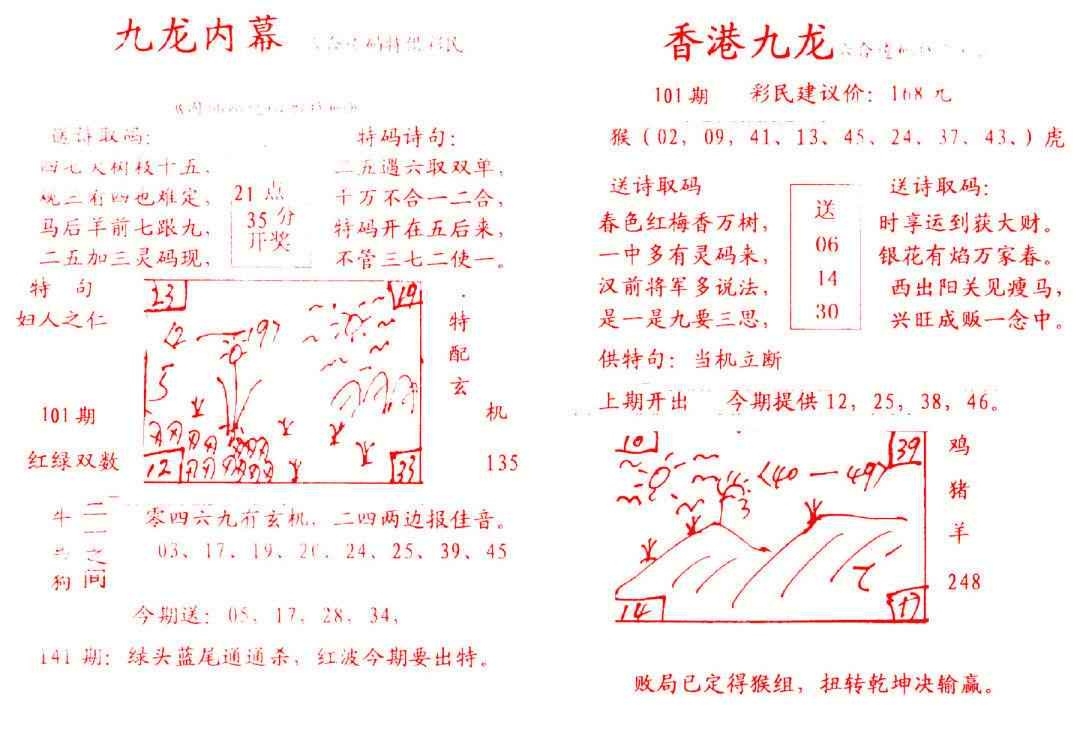 九龙内幕
送诗取码：
四七天树枝十五，
观三有四也难定，
马后羊前七跟九，
二五加三灵码现，
21 点
35 分
开奖
特码诗句：
二五遇六取双单，
十万不合一二合，
特码开在五后来，
不管三七二使一。
特 句
妇人之仁
101 期
红绿双数
23
19
12—19)
5
12
33
特
配
玄
机
135
牛
狗
二
一
之
间
零四六九有玄机，二四两边报佳音。
03、17、19、20、24、25、39、45
今期送：05，17，28，34，
141 期：绿头蓝尾通通杀，红波今期要出特。
香港九龙
101 期 彩民建议价：168 元
猴（02，09，41，13，45，24，37，43、）虎
送诗取码
春色红梅香万树，
一中多有灵码来，
汉前将军多说法，
是一是九要三思，
送
06
14
30
送诗取码：
时享运到获大财。
银花有焰万家春。
西出阳关见瘦马，
兴旺成贩一念中。
供特句：当机立断
上期开出 今期提供 12，25，38，46。
10
39
(40—49)
3
14
17
鸡
猪
羊
248
败局已定得猴组，扭转乾坤决输赢。